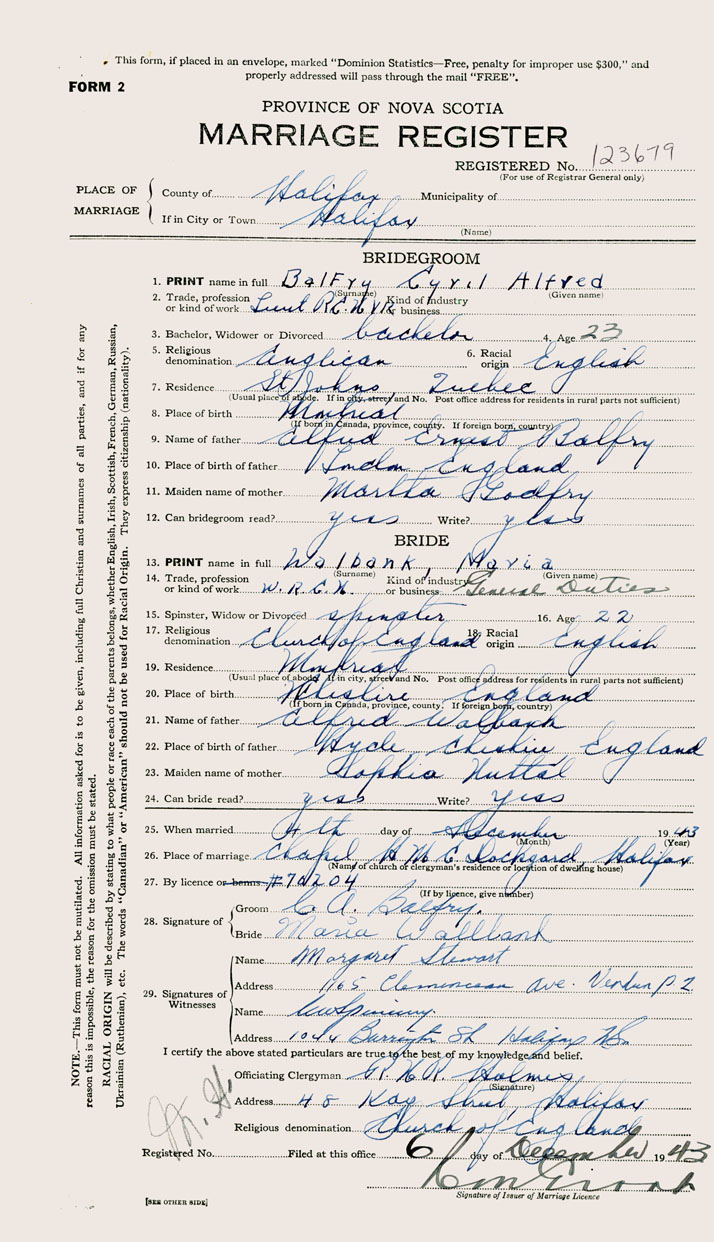 This form, if placed in an envelope, marked "Dominion Statistics—Free, penalty for improper use $300," and
properly addressed will pass through the mail "FREE".
FORM 2
PROVINCE OF NOVA SCOTIA
MARRIAGE REGISTER
REGISTERED No. 123679
(For use of Registrar General only)
PLACE OF MARRIAGE
County of Halifax Municipality of
If in City or Town Halifax
(Name)
BRIDEGROOM
1. PRINT name in full Balfry Cyril Alfred
(Surname) (Given name)
2. Trade, profession or kind of work Lieut R.C.N.V.R. Kind of industry or business
3. Bachelor, Widower or Divorced bachelor 4. Age 23
5. Religious denomination Anglican 6. Racial origin English
7. Residence St Johns Quebec
(Usual place of abode. If in city, street and No. Post office address for residents in rural parts not sufficient)
8. Place of birth Montreal
(If born in Canada, province, county. If foreign born, country)
9. Name of father Alfred Ernest Balfry
10. Place of birth of father London England
11. Maiden name of mother Martha Godfry
12. Can bridegroom read? yess Write? yess
BRIDE
13. PRINT name in full Walbank, Maria
(Surname) (Given name)
14. Trade, profession or kind of work W.R.C.N. Kind of industry or business General Duties
15. Spinster, Widow or Divorced spinster 16. Age 22
17. Religious denomination Church of England 18. Racial origin English
19. Residence Montreal
(Usual place of abode. If in city, street and No. Post office address for residents in rural parts not sufficient)
20. Place of birth Cheshire England
(If born in Canada, province, county. If foreign born, country)
21. Name of father Alfred Walbank
22. Place of birth of father Hyde Cheshire England
23. Maiden name of mother Sophia Nuttal
24. Can bride read? yess Write? Yess
25. When married 4th day of December 1943
(Month) (Year)
26. Place of marriage Chapel H.M.C. Dockyard, Halifax
(Name of church or clergyman's residence or location of dwelling house)
27. By licence or banns #70204
(If by licence, give number)
28. Signature of
Groom C. A. Balfry.
Bride Maria Wallbank
29. Signatures of Witnesses
Name Margaret Stewart
Address 1165 Clemenceau Ave. Verdun P.2
Name
Address 1044 Barrington St. Halifax N.S.
I certify the above stated particulars are true to the best of my knowledge and belief.
Officiating Clergyman Holmes
(Signature)
Address 48 Kay Street, Halifax
Religious denomination Church of England
Registered No. Filed at this office 6 day of December 1943
Signature of Issuer of Marriage Licence
[SEE OTHER SIDE]
NOTE.—This form must not be mutilated. All information asked for is to be given, including full Christian and surnames of all parties, and if for any
reason this is impossible, the reason for the omission must be stated.
RACIAL ORIGIN will be described by stating to what people or race each of the parents belongs, whether English, Irish, Scottish, French, German, Russian,
Ukrainian (Ruthenian), etc. The words "Canadian" or "American" should not be used for Racial Origin. They express citizenship (nationality).